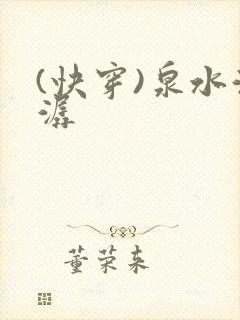 (快穿)泉水
潺
董荣来